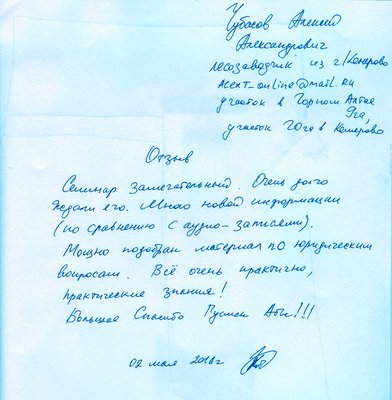 Чубасов Алексей
Александрович
лесозаводчик из г. Кемерово
alext-online@mail.ru
участок в Горном Алтае
9га,
участок 70га в Кемерово
Отзыв
Семинар замечательный. Очень долго
ждали его. Много новой информации
(по сравнению с аудио-записями).
Мощно подобран материал по юридическим
вопросам. Всё очень практично,
практические знания!
Большое Спасибо
!!!
02 мая 2016г